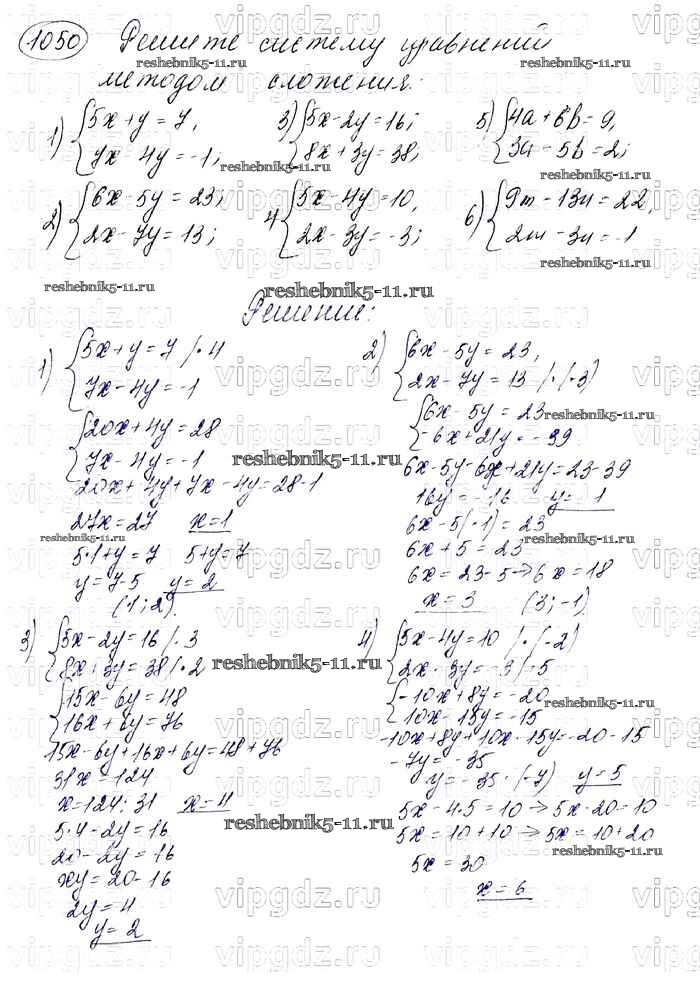 1050 Решите систему уравнений
методом сложения:
1) {5x + y = 7,
7x - 4y = -1;
3) {5x - 2y = 16;
8x + 3y = 38;
5) {4a + 6b = 9,
3a - 5b = 2;
2) {6x - 5y = 23;
2x - 7y = 13;
4) {5x - 4y = 10,
2x - 3y = -3;
6) {9m - 13n = 22,
2m - 3n = -1
Решение:
1) {5x + y = 7 /·4
7x - 4y = -1
{20x + 4y = 28
7x - 4y = -1
20x + 4y + 7x - 4y = 28 - 1
27x = 27 x = 1
5·1 + y = 7 5 + y = 7
y = 7 - 5 y = 2
(1; 2).
2) {6x - 5y = 23,
2x - 7y = 13 /·(-3)
{6x - 5y = 23
-6x + 21y = -39
6x - 5y - 6x + 21y = 23 - 39
16y = -16 y = -1
6x - 5(-1) = 23
6x + 5 = 23
6x = 23 - 5 → 6x = 18
x = 3 (3; -1)
3) {5x - 2y = 16 /·3
8x + 3y = 38 /·2
{15x - 6y = 48
16x + 6y = 76
15x - 6y + 16x + 6y = 48 + 76
31x = 124
x = 124 : 31 x = 4
5·4 - 2y = 16
20 - 2y = 16
xy = 20 - 16
2y = 4
y = 2
4) {5x - 4y = 10 /·(-2)
2x - 3y = -3 /·5
{-10x + 8y = -20
10x - 15y = -15
-10x + 8y + 10x - 15y = -20 - 15
-7y = -35
y = -35 : (-7) y = 5
5x - 4·5 = 10 → 5x - 20 = 10
5x = 10 + 10 → 5x = 10 + 20
5x = 30
x = 6
vipgdz.ru
reshebnik5-11.ru